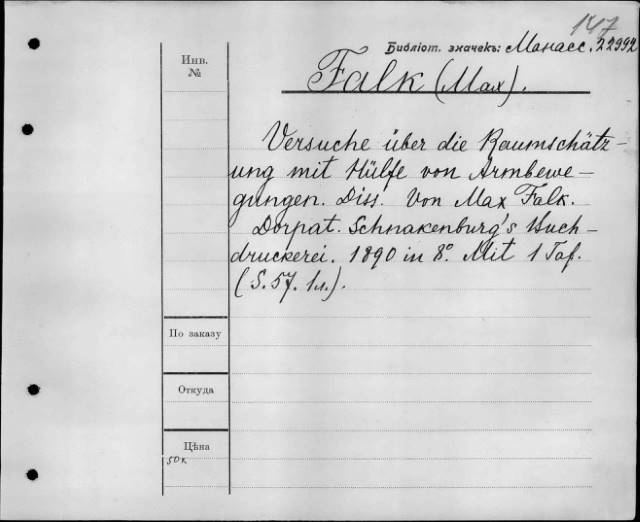 147
Библіот. значекъ: Манасс. 22992
Инв.
№
Falk (Max).
Versuche über die Raumschätz-
ung mit Hülfe von Armbewe-
gungen. Diss. Von Max Falk.
Dorpat. Schnakenburg's Buch-
druckerei. 1890 in 8°. Mit 1 Taf.
(S. 57. 1л.).
По заказу
Откуда
Цѣна
50к